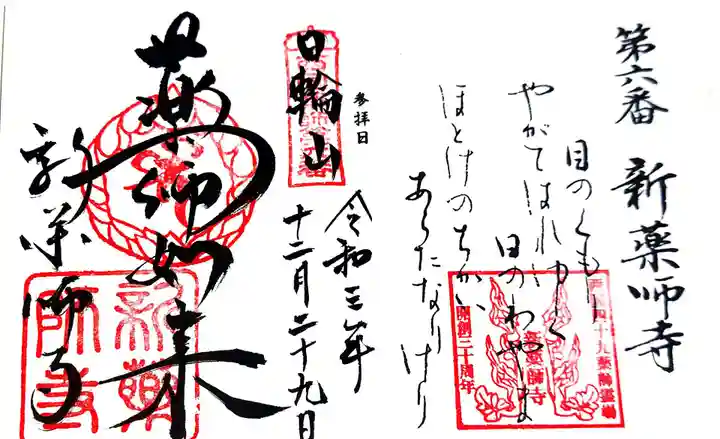 第六番 新薬師寺
目のくもり
やがてはれゆく
日のわやま
ほとけのちかい
あらたなりけり
西国四十九薬師霊場
新薬師寺
開創三十周年
参拝日
令和三年
十二月二十九日
日輪山
薬師如来
新薬師寺
新薬師寺